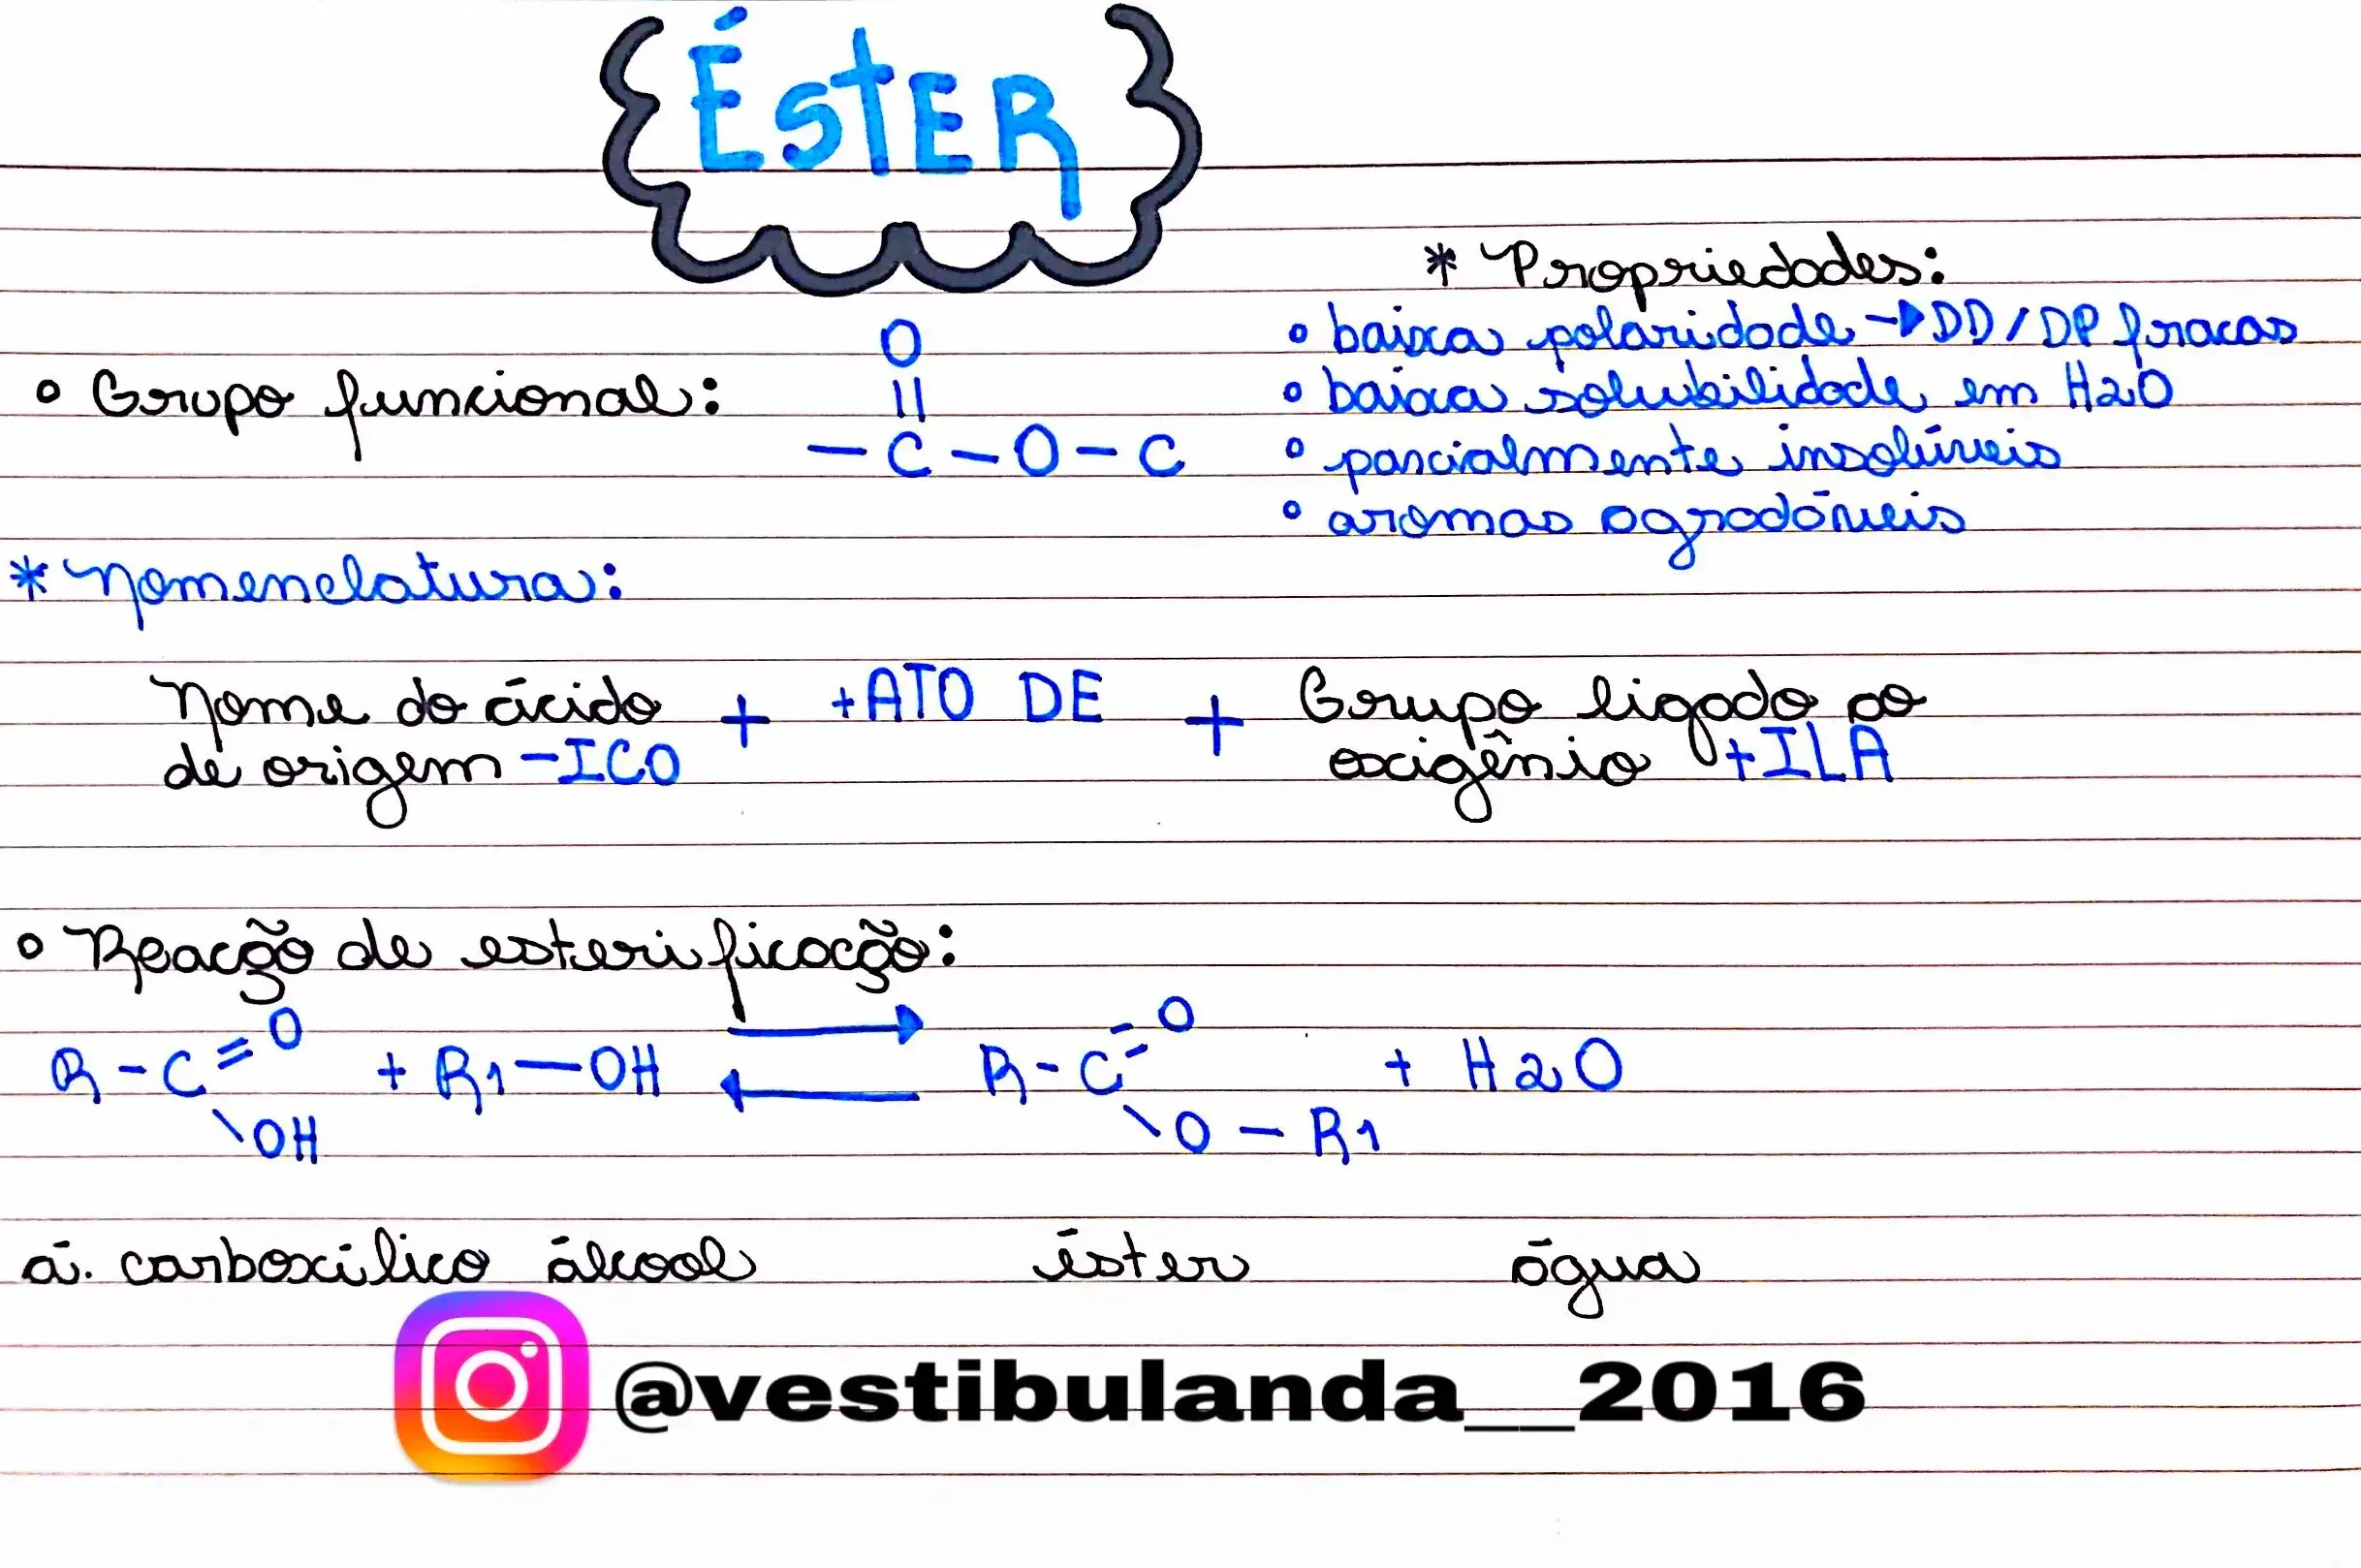 ÉSTER
* Propriedades:
• baixa polaridade → DD/DP fracas
• baixa solubilidade em H2O
• parcialmente insolúveis
• aromas agradáveis
• Grupo funcional:
O
||
— C — O — C
* Nomenclatura:
Nome do ácido + +ATO DE + Grupo ligado ao
de origem -ICO oxigênio +ILA
• Reação de esterificação:
O O
R - C = + R1 — OH ⇄ R - C = + H2O
\ OH \ O — R1
á. carboxílico álcool éster água
@vestibulanda__2016